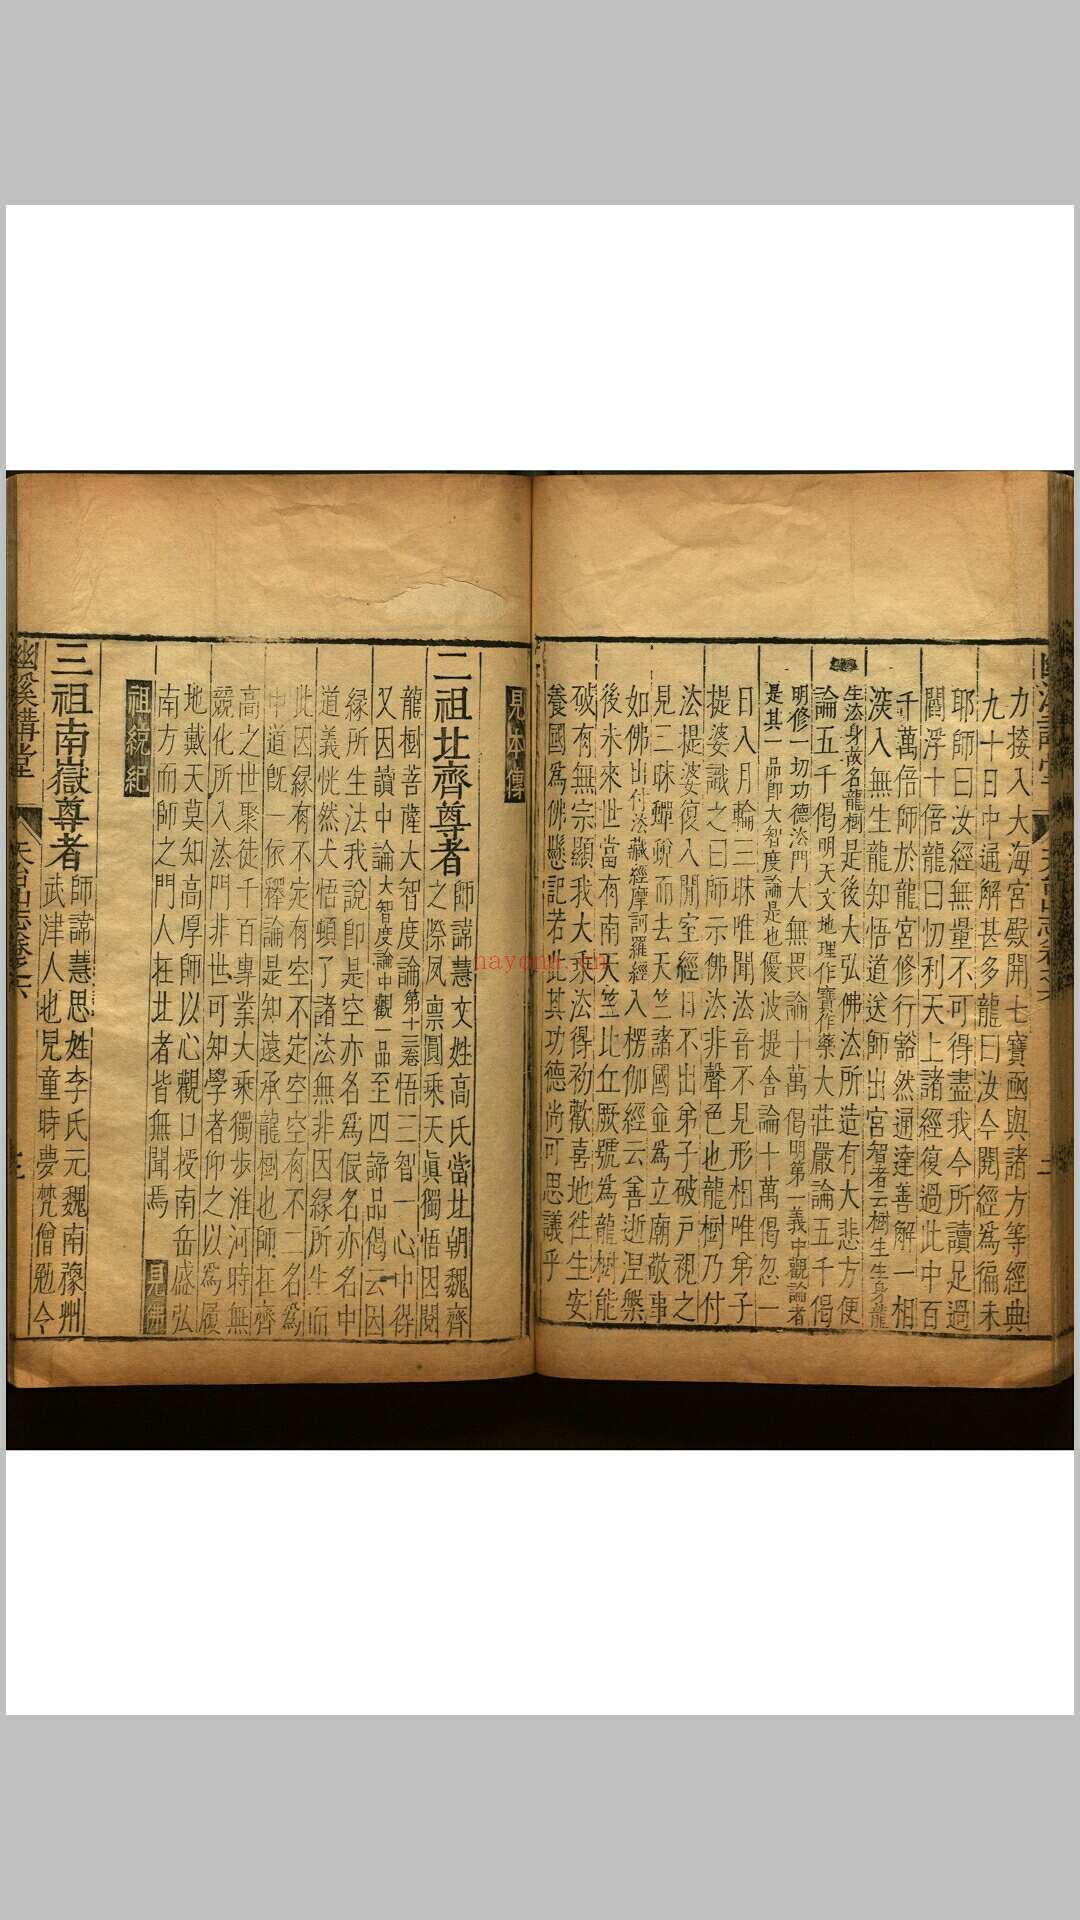 力接入大海宮殿開七寶函與諸方等經典
九十日中通解甚多龍曰汝今閱經爲徧未
耶師曰汝經無量不可得盡我今所讀足過
閻浮十倍龍曰忉利天上諸經復過此中百
千萬倍師於龍宮修行豁然通達善解一相
深入無生龍知悟道送師出宮智者云樹生生身龍
生法身故名龍樹是後大弘佛法所造有大悲方便
論五千偈明天文地理作寶作藥大莊嚴論五千偈
明修一切功德法門大無畏論十萬偈明第一義中觀論者
是其一品即大智度論是也優波提舍論十萬偈忽一
日入月輪三昧唯聞法音不見形相唯弟子
提婆識之曰師示佛法非聲色也龍樹乃付
法提婆復入閒室經日不出弟子破戶視之
見三昧蟬蛻而去天竺諸國並爲立廟敬事
如佛出付法藏經摩訶羅經入楞伽經云善逝涅槃
後未來世當有南天竺比丘厥號爲龍樹能
破有無宗顯我大乘法得初歡喜地往生安
養國爲佛懸記若此其功德尚可思議乎
見本傳
二祖北齊尊者
師諱慧文姓高氏當北朝魏齊
之際夙稟圓乘天眞獨悟因閱
龍樹菩薩大智度論第十三卷悟三智一心中得
又因讀中論大智度論中觀一品至四諦品偈云因
緣所生法我說即是空亦名爲假名亦名中
道義恍然大悟頓了諸法無非因緣所生而
此因緣有不定有空不定空空有不二名爲
中道旣一依釋論是知遠承龍樹也師在齊
高之世聚徒千百專業大乘獨步淮河時無
競化所入法門非世可知學者仰之以爲履
地戴天莫知高厚師以心觀口授南岳盛弘
南方而師之門人在北者皆無聞焉
見佛
祖統紀
三祖南嶽尊者
師諱慧思姓李氏元魏南豫州
武津人也兒童時夢梵僧勉令
幽溪講堂
天台山志卷之六
hayona.cn